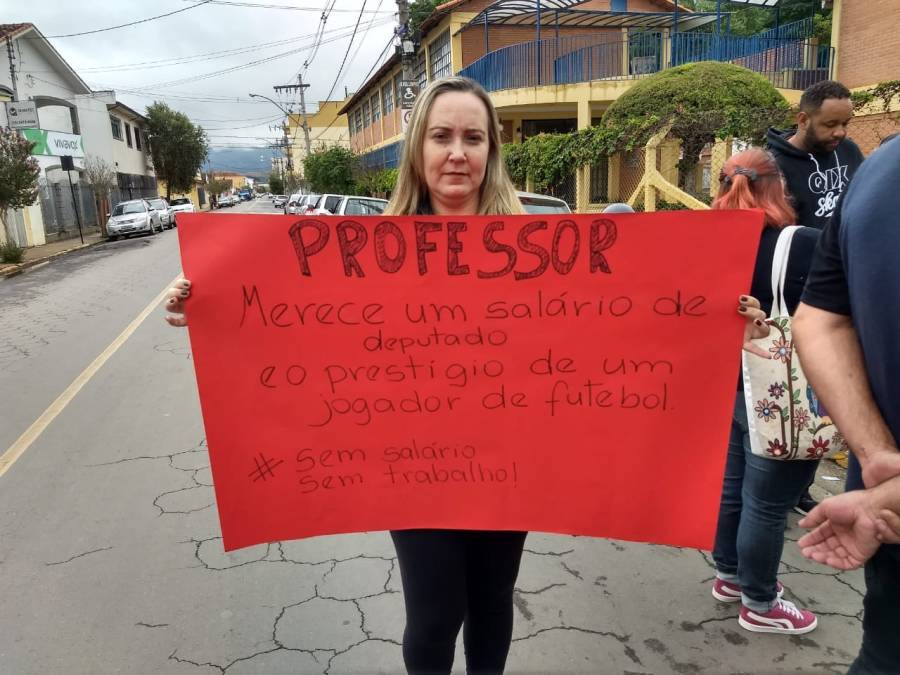 PROFESSOR
Merece um salário de
deputado
e o prestígio de um
jogador de futebol.
# Sem salário
Sem trabalho!
VIVAVOX